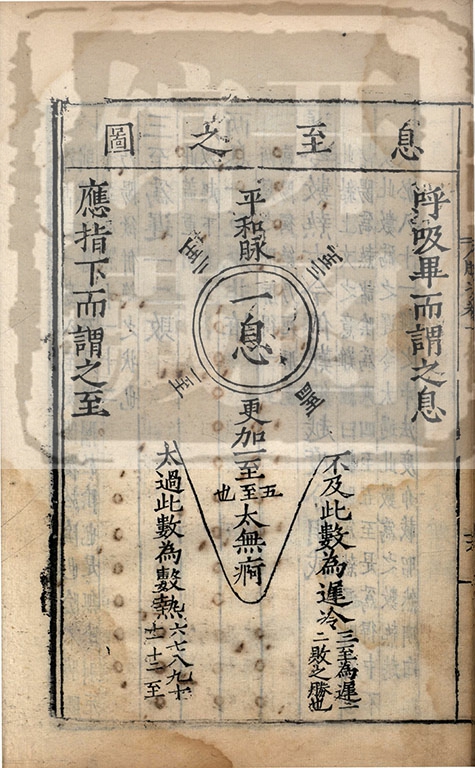 息至之圖
呼吸畢而謂之息
應指下而謂之至
平和脉
一息
二至
三至
四至
一至
更加一至
五至也
太無痾
不及此數為遲冷
三至為遲
二敗之
太過此數為數熱
六七八九十
十一十二至